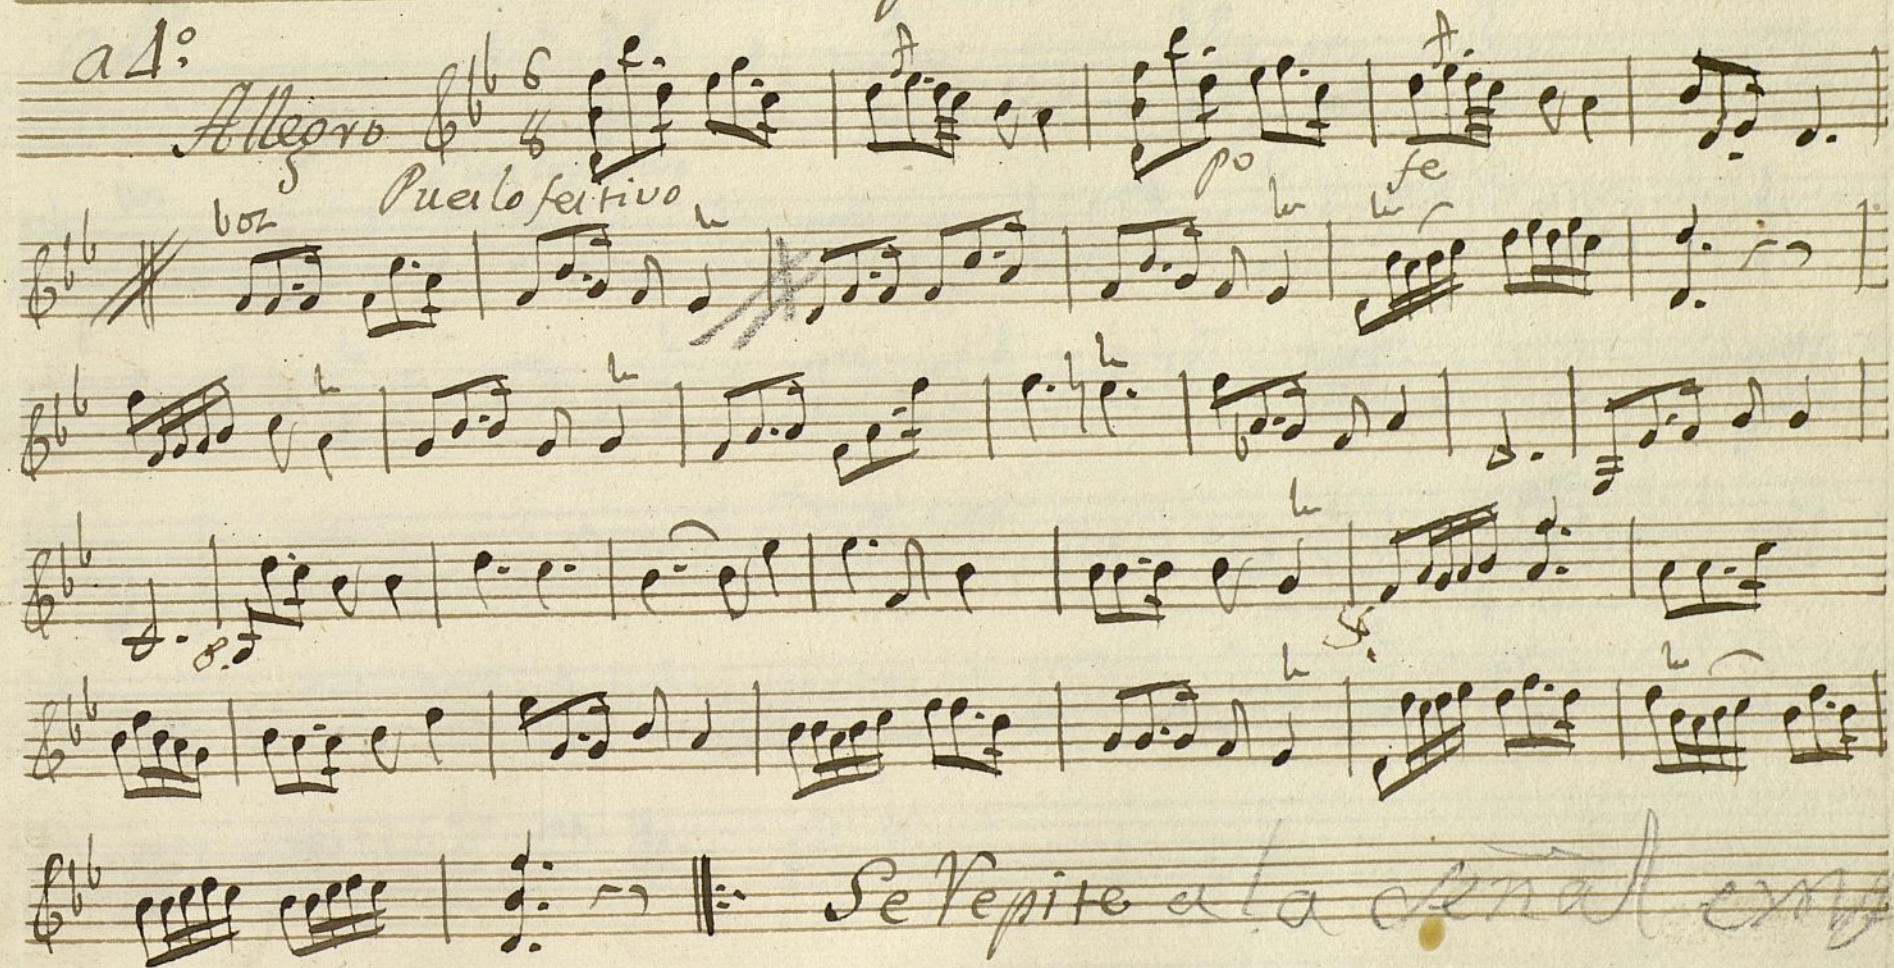 a 4º
Allegro 6 8
Pueblo festivo po fe
boz
Se Repite a la señal